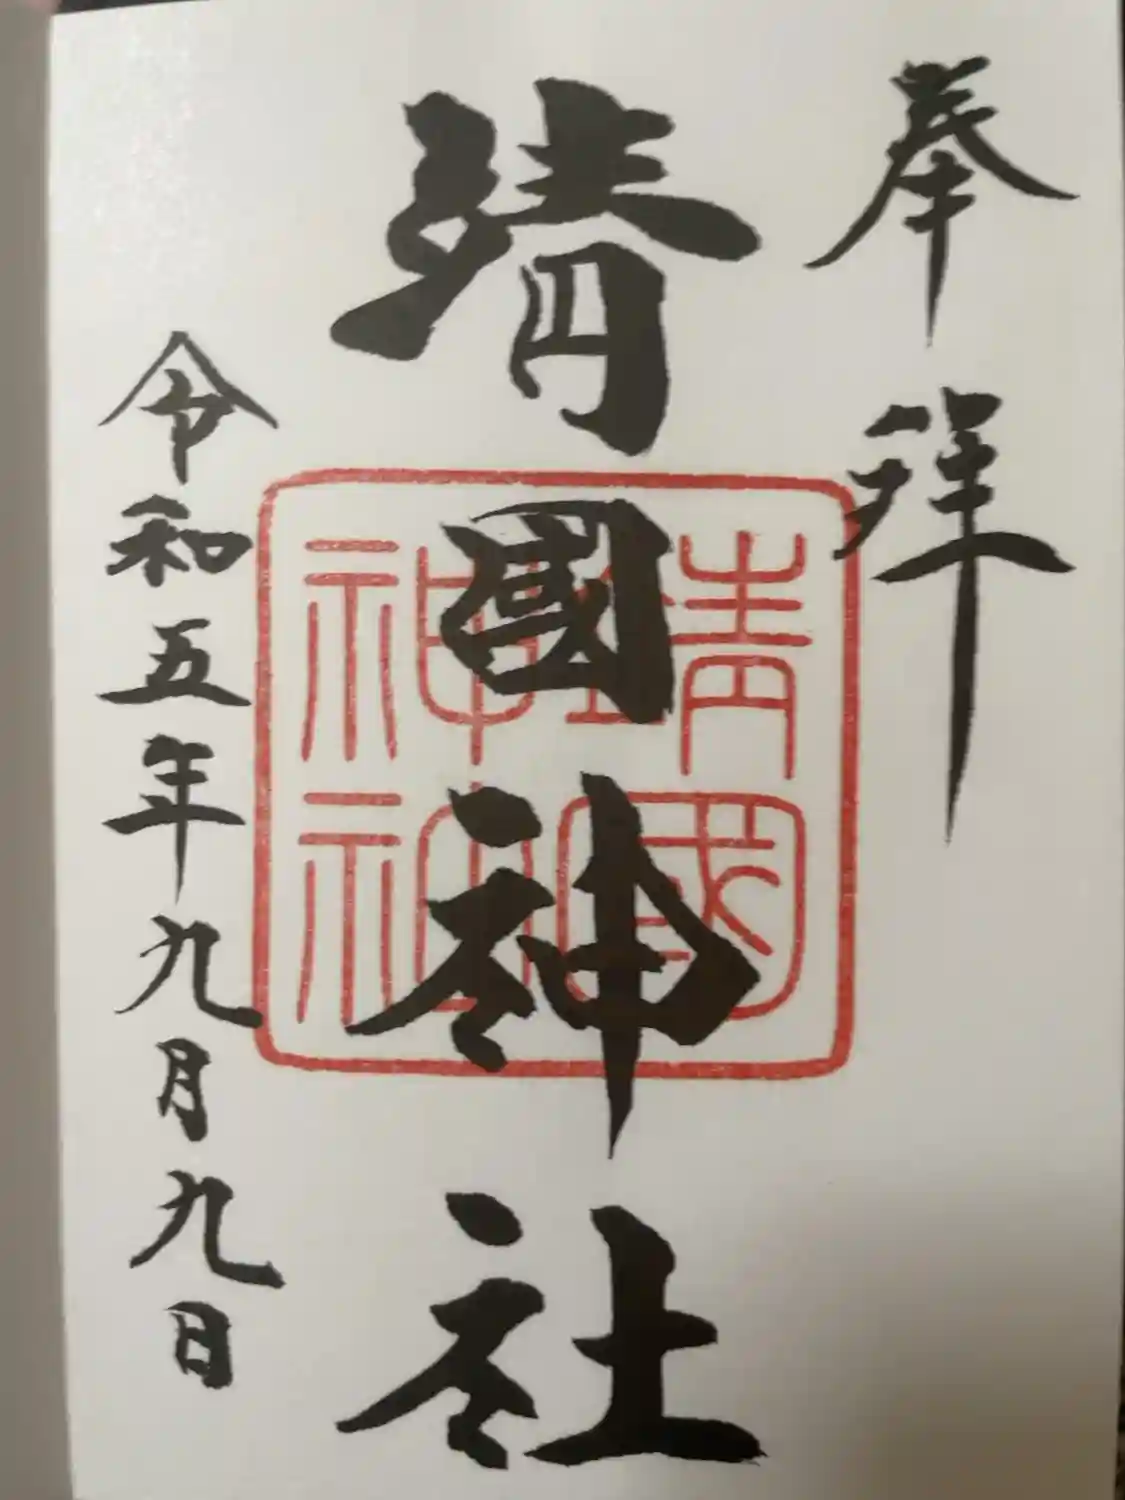 奉拝
靖國神社
令和五年九月九日
靖國
神社